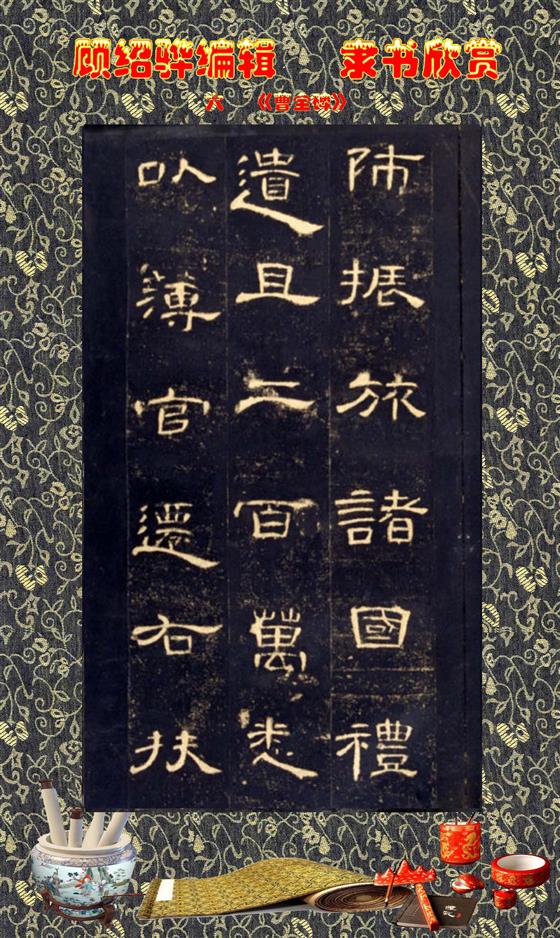 顾绍骅编辑 隶书欣赏
六 《曹全碑》
师振旅諸國禮
遺且二百萬悉
以薄官遷右扶